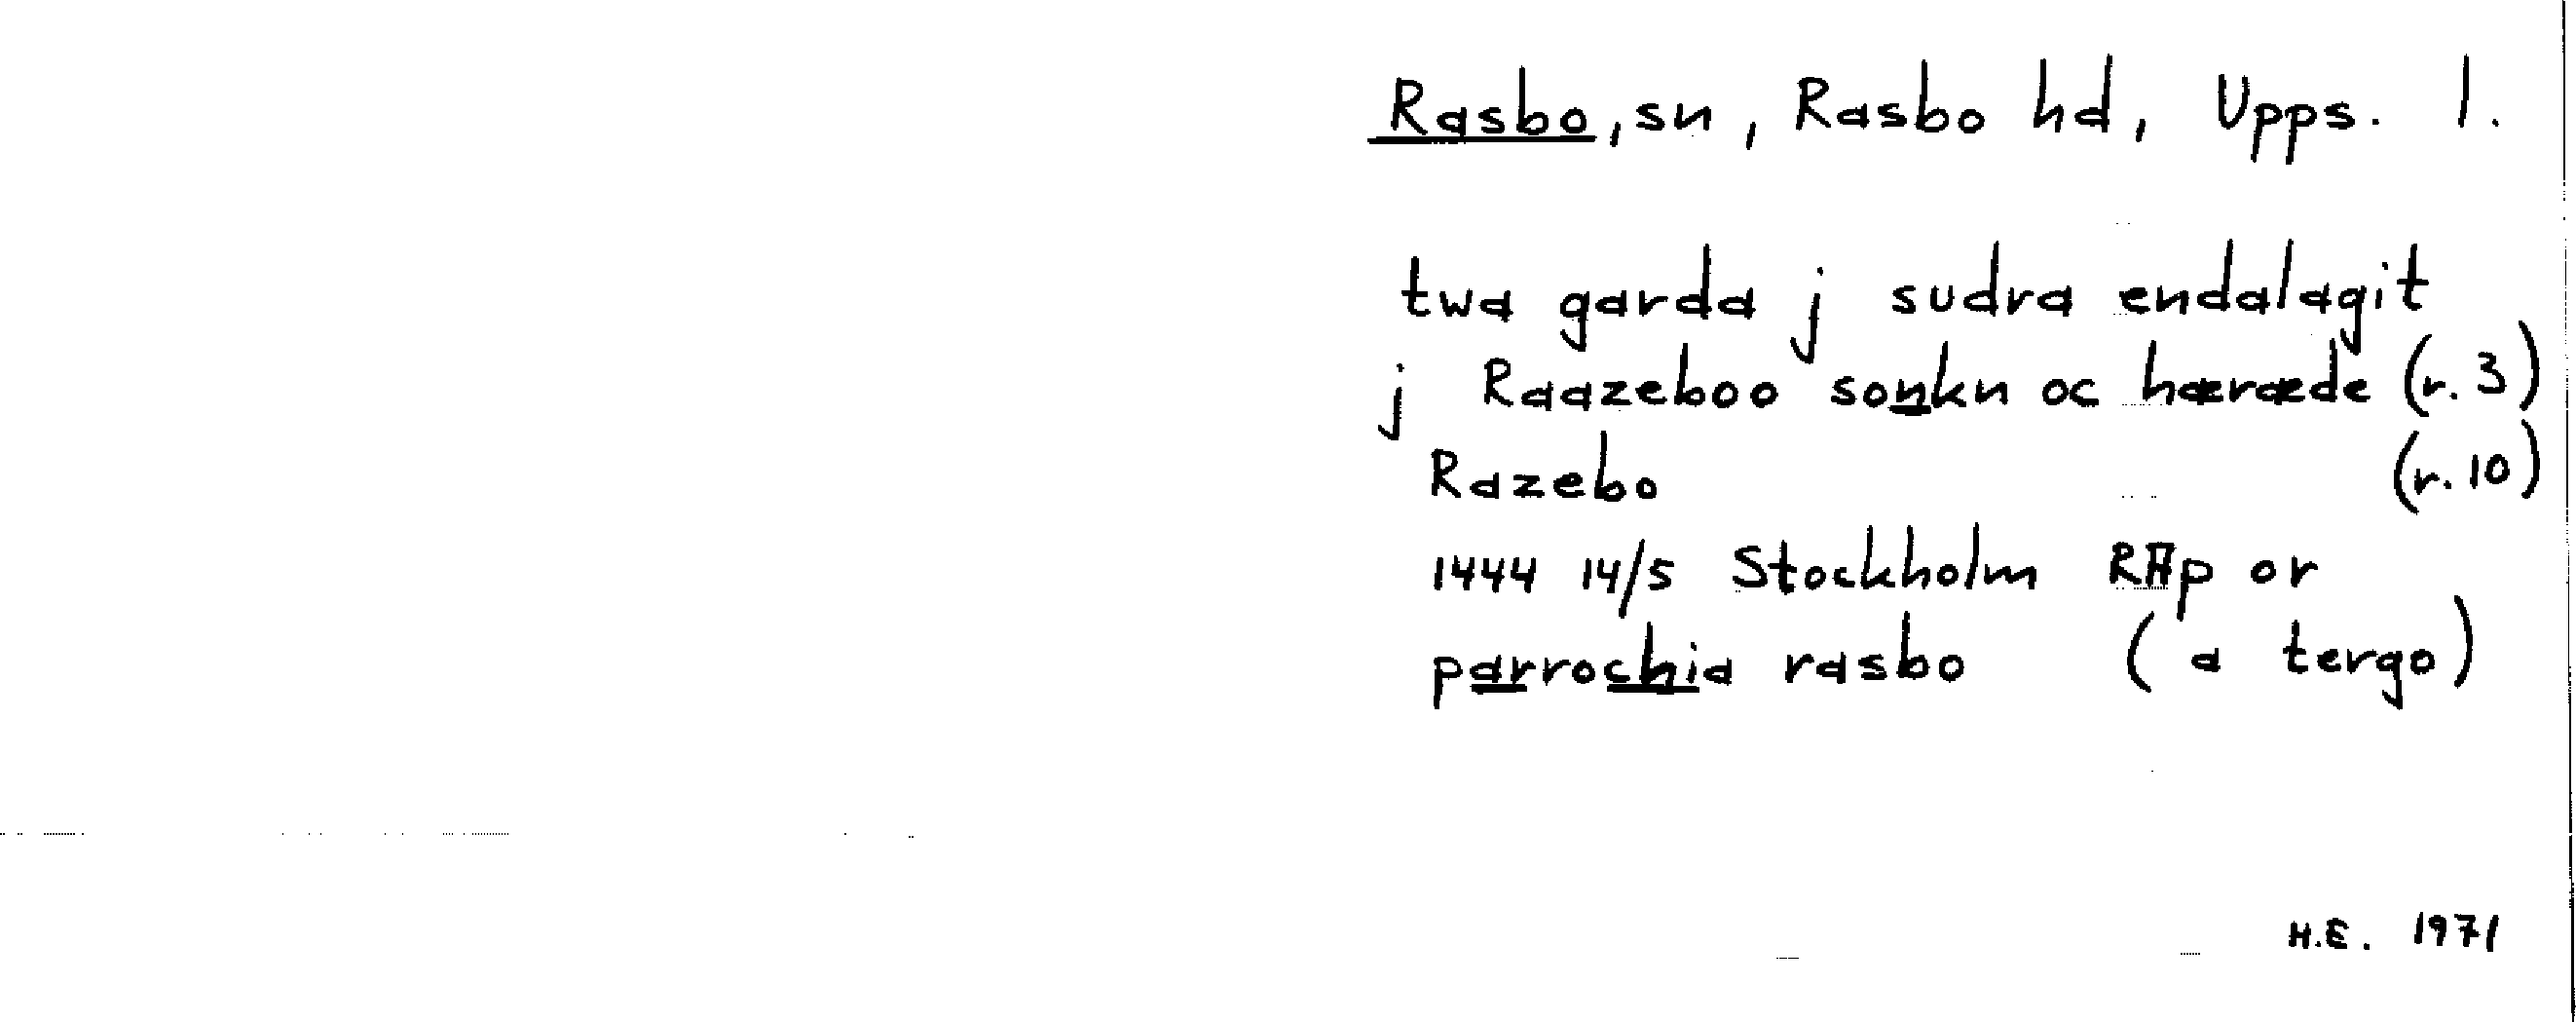 Rasbo, sn, Rasbo hd, Upps. l.
twa garda j sudra endalagit
j Raazeboo sonkn oc hæræde (r. 3)
Razebo (r. 10)
1444 14/5 Stockholm RAp or
parrochia rasbo (a tergo)
H.E. 1971